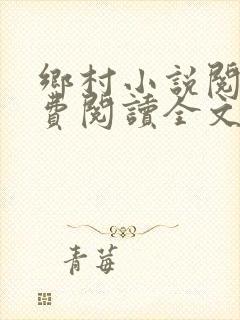 鄉村小說閱
費閱讀全文
青莓